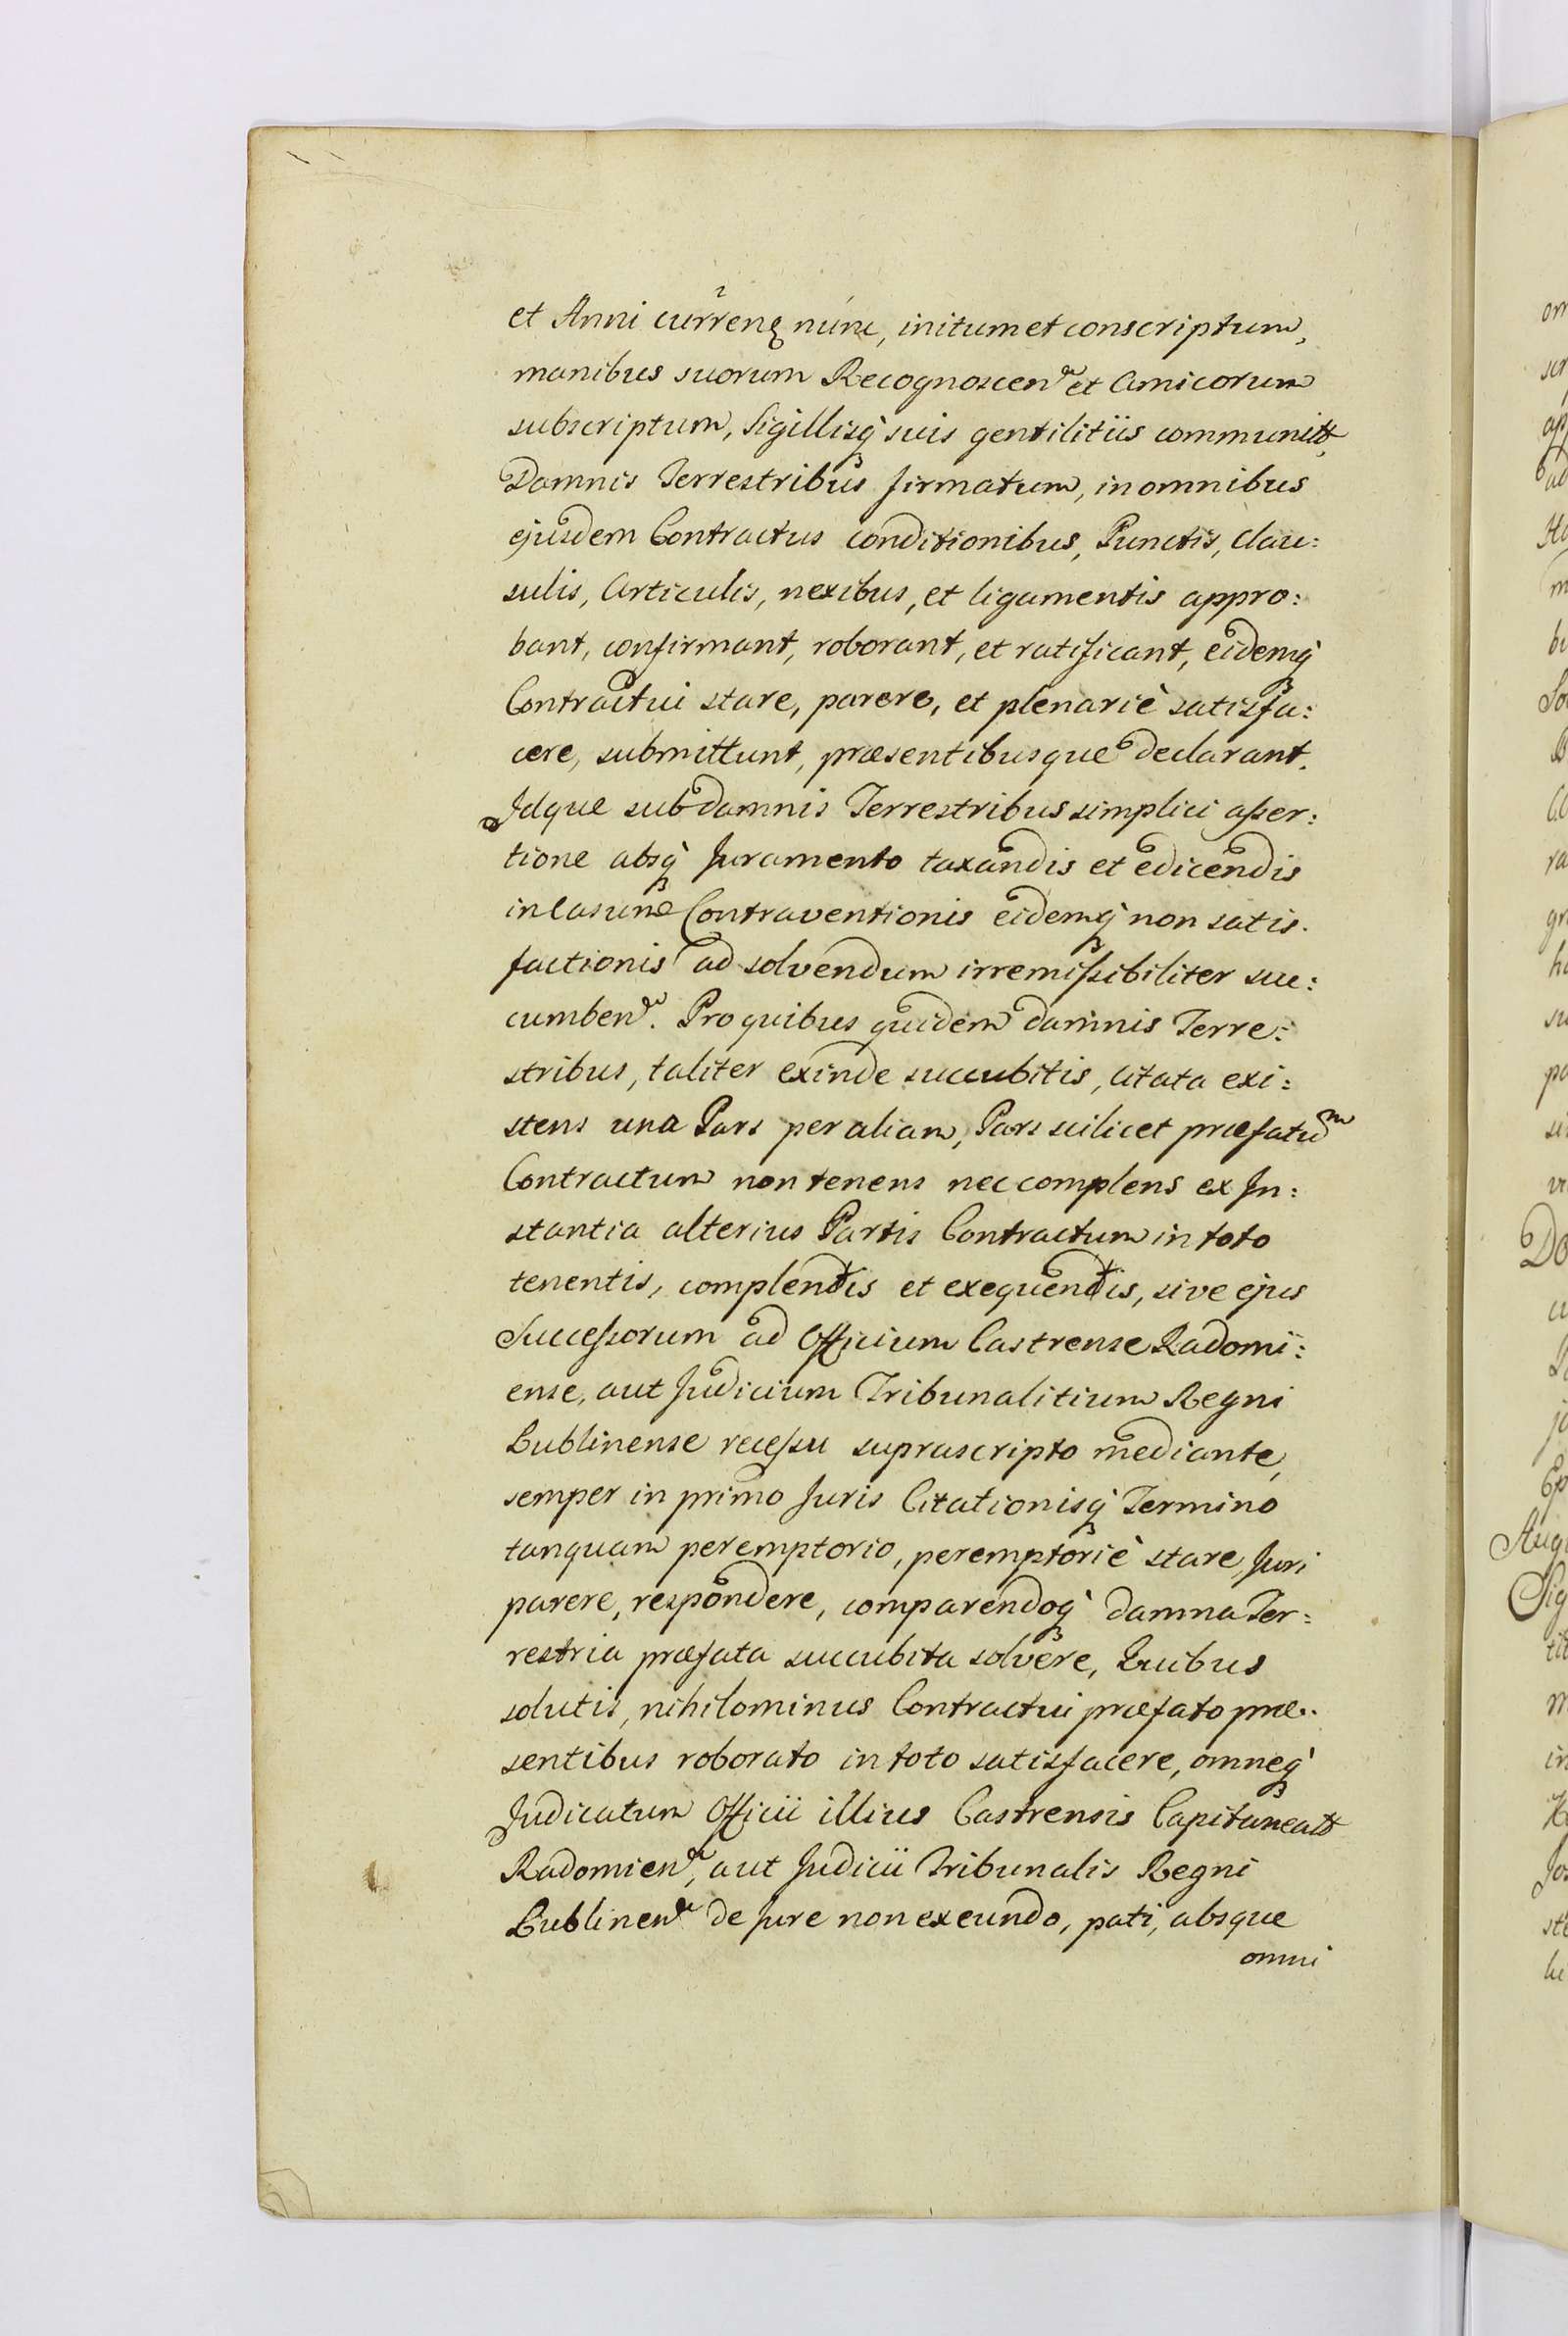 et Anni currenꝫ nunc, initum et conscriptum,
manibus suorum Recognoscenꝶ et Amicorum
subscriptum, Sigillisqꝫ suis gentilitiis communitꝫ,
Damnis Terrestribus firmatum, in omnibus
ejusdem Contractus conditionibus, Punctis, Clau:
sulis, Articulis, nexibus, et ligamentis appro:
bant, confirmant, roborant, et ratificant, eidemqꝫ
Contractui stare, parere, et plenariè satisfa:
cere, submittunt, præsentibusque declarant.
Idque sub damnis Terrestribus simplici asser:
tione absqꝫ Juramento taxandis et edicendis
in Casum Contraventionis eidemqꝫ non satis.
factionis ad solvendum irremissibiliter suc:
cumbenꝶ. Pro quibus quidem damnis Terre:
stribus, taliter exinde succubitis, citata exi:
stens una Pars per aliam, Pars scilicet præfatum
Contractum non tenens nec complens ex In:
stantia alterius Partis Contractum in toto
tenentis, complentis et exequentis, sive ejus
Successorum ad Officium Castrense Radomi:
ense, aut Judicium Tribunalitium Regni
Lublinense recessu suprascripto mediante,
semper in primo Juris Citationisqꝫ Termino
tanquam peremptorio, peremptoriè stare Juri
parere, respondere, comparendoqꝫ damna Ter:
restria præfata succubita solvere, Quibus
solutis, nihilominus Contractui præfato præ:
sentibus roborato in toto satisfacere, omneqꝫ
Judicatum Officii illius Castrensis Capitaneatꝫ
Radomienꝶ, aut Judicii Tribunalis Regni
Lublinenꝶ de Jure non exeundo, pati, absque
omni